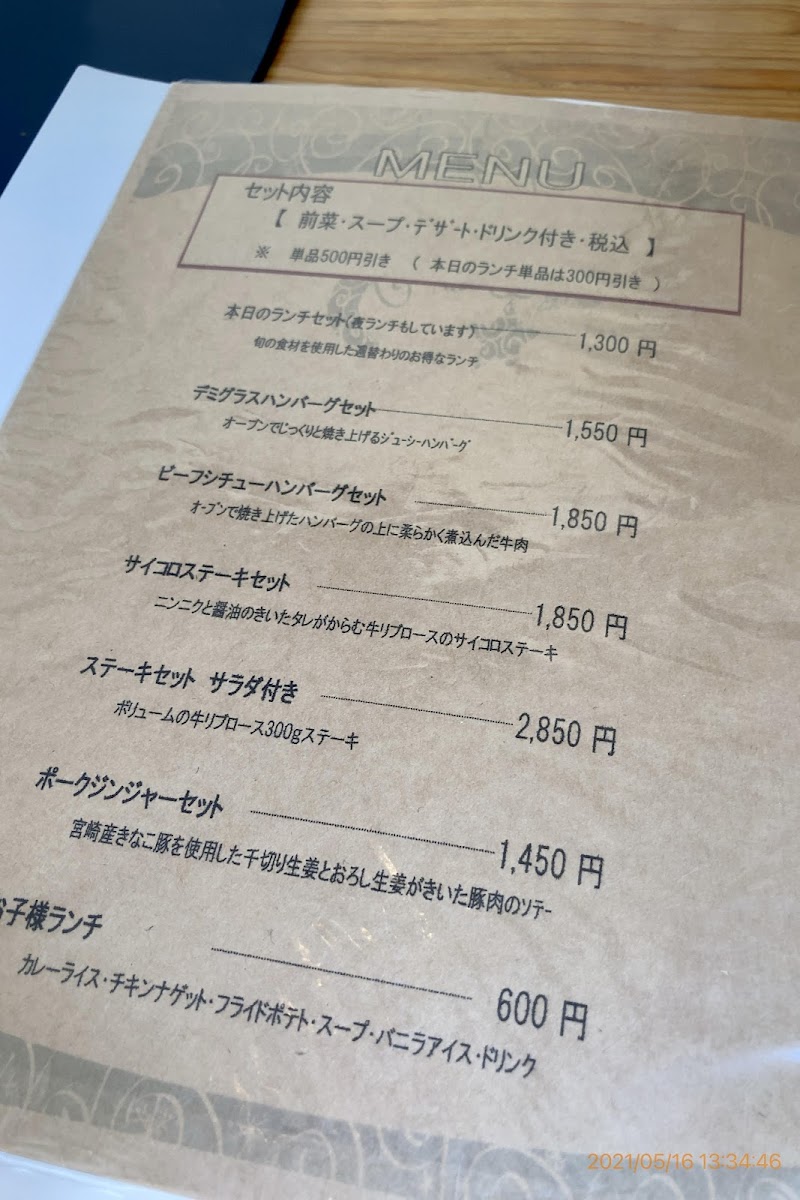 MENU
セット内容
【 前菜・スープ・デザート・ドリンク付き・税込 】
※ 単品500円引き ( 本日のランチ単品は300円引き )
本日のランチセット(夜ランチもしています) 1,300 円
旬の食材を使用した週替わりのお得なランチ
デミグラスハンバーグセット 1,550 円
オーブンでじっくりと焼き上げるジューシーハンバーグ
ビーフシチューハンバーグセット 1,850 円
オーブンで焼き上げたハンバーグの上に柔らかく煮込んだ牛肉
サイコロステーキセット 1,850 円
ニンニクと醤油のきいたタレがからむ牛リブロースのサイコロステーキ
ステーキセット サラダ付き 2,850 円
ボリュームの牛リブロース300gステーキ
ポークジンジャーセット 1,450 円
宮崎産きなこ豚を使用した千切り生姜とおろし生姜がきいた豚肉のソテー
お子様ランチ 600 円
カレーライス・チキンナゲット・フライドポテト・スープ・バニラアイス・ドリンク
2021/05/16 13:34:46